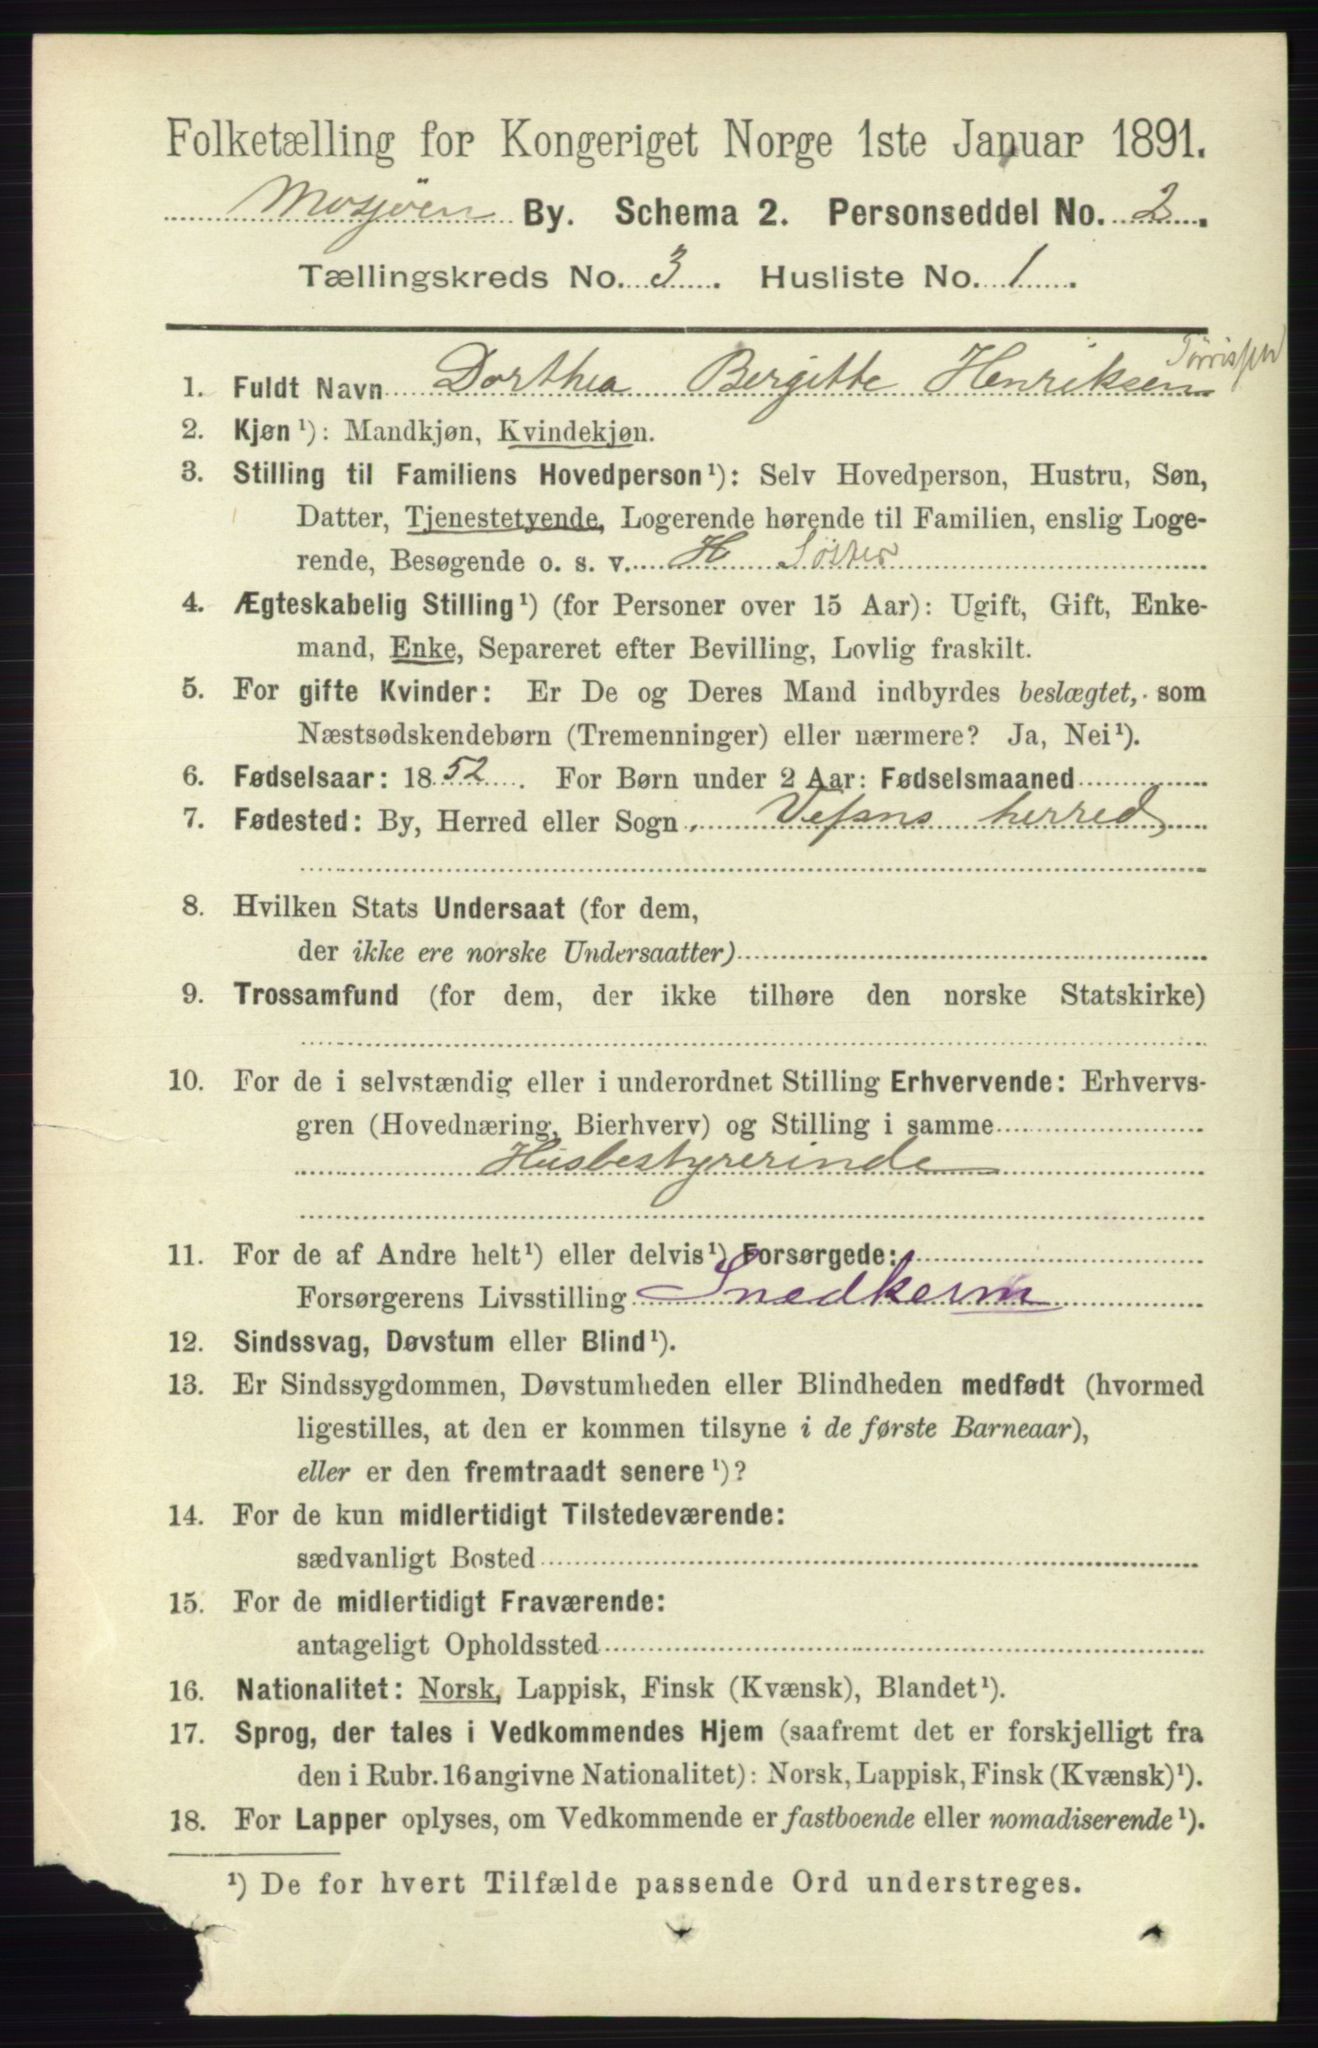 Folketælling for Kongeriget Norge 1ste Januar 1891.
Mosjøen By. Schema 2. Personseddel No. 2.
Tællingskreds No. 3. Husliste No. 1.
Tørrissen
1. Fuldt Navn Dorthea Bergitte Henriksen
2. Kjøn¹): Mandkjøn, Kvindekjøn.
3. Stilling til Familiens Hovedperson¹): Selv Hovedperson, Hustru, Søn,
Datter, Tjenestetyende, Logerende hørende til Familien, enslig Loge-
rende, Besøgende o. s. v. H Søster
4. Ægteskabelig Stilling¹) (for Personer over 15 Aar): Ugift, Gift, Enke-
mand, Enke, Separeret efter Bevilling, Lovlig fraskilt.
5. For gifte Kvinder: Er De og Deres Mand indbyrdes beslægtet, som
Næstsødskendebørn (Tremenninger) eller nærmere? Ja, Nei¹).
6. Fødselsaar: 1852. For Børn under 2 Aar: Fødselsmaaned
7. Fødested: By, Herred eller Sogn Vefsns herred
8. Hvilken Stats Undersaat (for dem,
der ikke ere norske Undersaatter)
9. Trossamfund (for dem, der ikke tilhøre den norske Statskirke)
10. For de i selvstændig eller i underordnet Stilling Erhvervende: Erhvervs-
gren (Hovednæring, Bierhverv) og Stilling i samme
Husbestyrerinde
11. For de af Andre helt¹) eller delvis¹) Forsørgede:
Forsørgerens Livsstilling Snedkerm
12. Sindssvag, Døvstum eller Blind¹).
13. Er Sindssygdommen, Døvstumheden eller Blindheden medfødt (hvormed
ligestilles, at den er kommen tilsyne i de første Barneaar),
eller er den fremtraadt senere¹)?
14. For de kun midlertidigt Tilstedeværende:
sædvanligt Bosted
15. For de midlertidigt Fraværende:
antageligt Opholdssted
16. Nationalitet: Norsk, Lappisk, Finsk (Kvænsk), Blandet¹).
17. Sprog, der tales i Vedkommendes Hjem (saafremt det er forskjelligt fra
den i Rubr. 16 angivne Nationalitet): Norsk, Lappisk, Finsk (Kvænsk)¹).
18. For Lapper oplyses, om Vedkommende er fastboende eller nomadiserende¹).
¹) De for hvert Tilfælde passende Ord understreges.